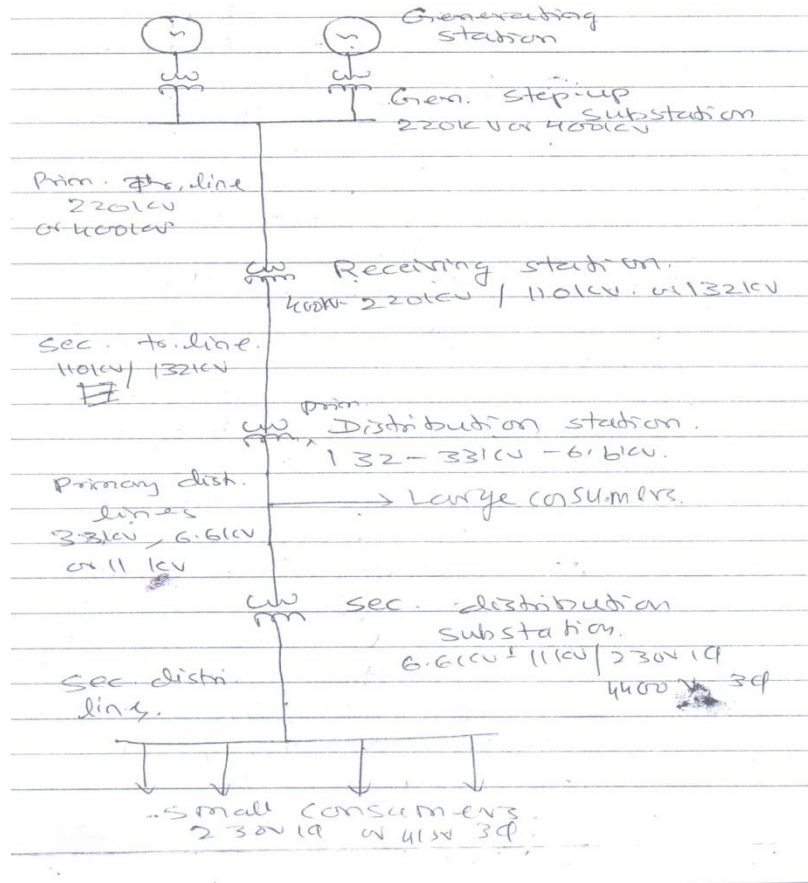 Generating
station
Gen. step-up
substation
220kV or 400kV
Prim. tr. line
220kV
or 400kV
Receiving station.
400kV- 220kV / 110kV. or 132kV
Sec. tr. line.
110kV/ 132kV
prim.
Distribution station.
132 - 33kV - 6.6kV.
Primary dist.
lines
3.3kV, 6.6kV
or 11 kV
Large consumers.
sec. distribution
substation.
6.6kV 11kV/230V 1φ
4400 V 3φ
Sec. distri.
lines.
small consumers
230V 1φ or 415V 3φ.